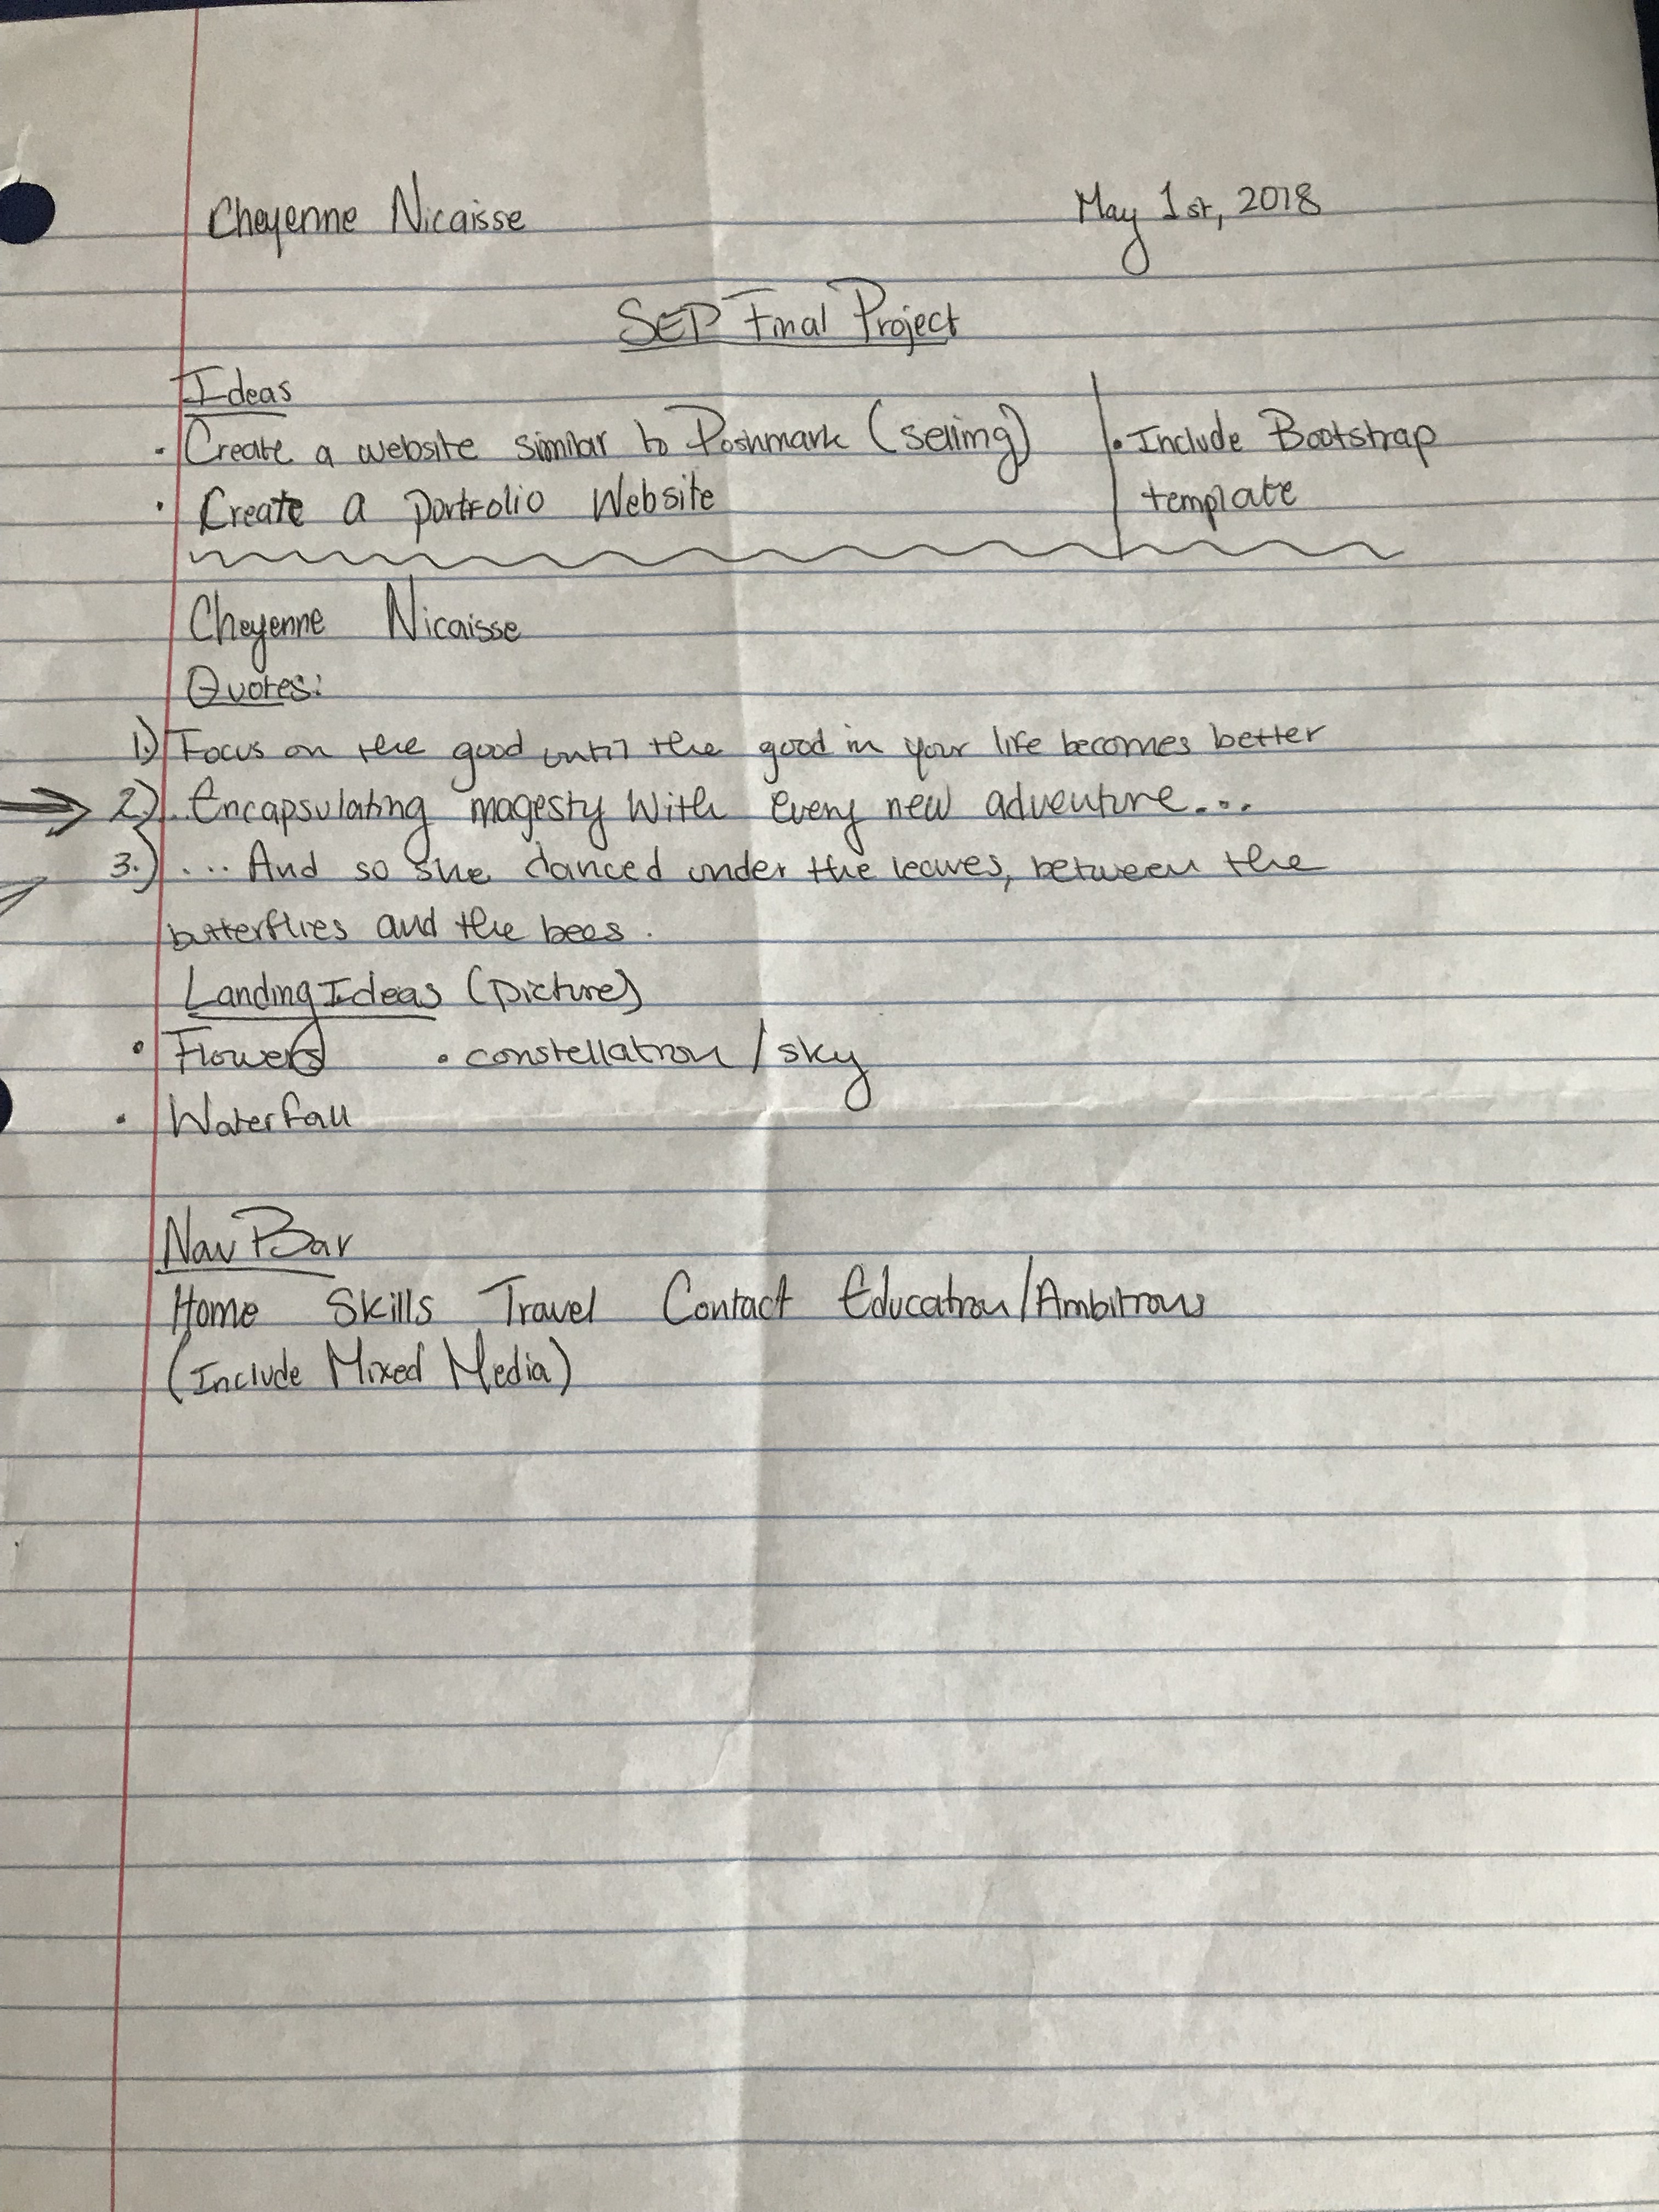 Cheyenne Nicaisse May 1st, 2018
SEP Final Project
Ideas
· Create a website similar to Poshmark (selling) | • Include Bootstrap
· Create a Portfolio Website template
Cheyenne Nicaisse
Quotes:
1.) Focus on the good until the good in your life becomes better
2.) Encapsulating magesty With every new adventure...
3.) ... And so she danced under the leaves, between the
butterflies and the bees.
Landing Ideas (picture)
• Flowers • constellation / sky
• Waterfall
Nav Bar
Home Skills Travel Contact Education/Ambitions
(Include Mixed Media)